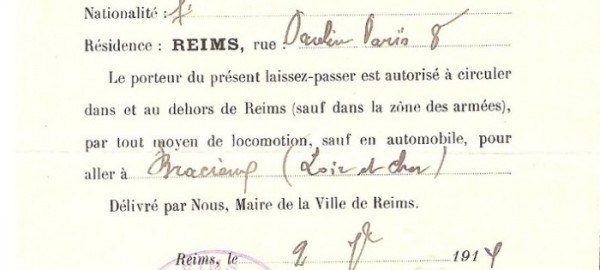 Nationalité : f.
Résidence : REIMS, rue : Paulin Paris 8
Le porteur du présent laissez-passer est autorisé à circuler
dans et au dehors de Reims (sauf dans la zône des armées),
par tout moyen de locomotion, sauf en automobile, pour
aller à Bracieux (Loir et cher)
Délivré par Nous, Maire de la Ville de Reims.
Reims, le 2 1914